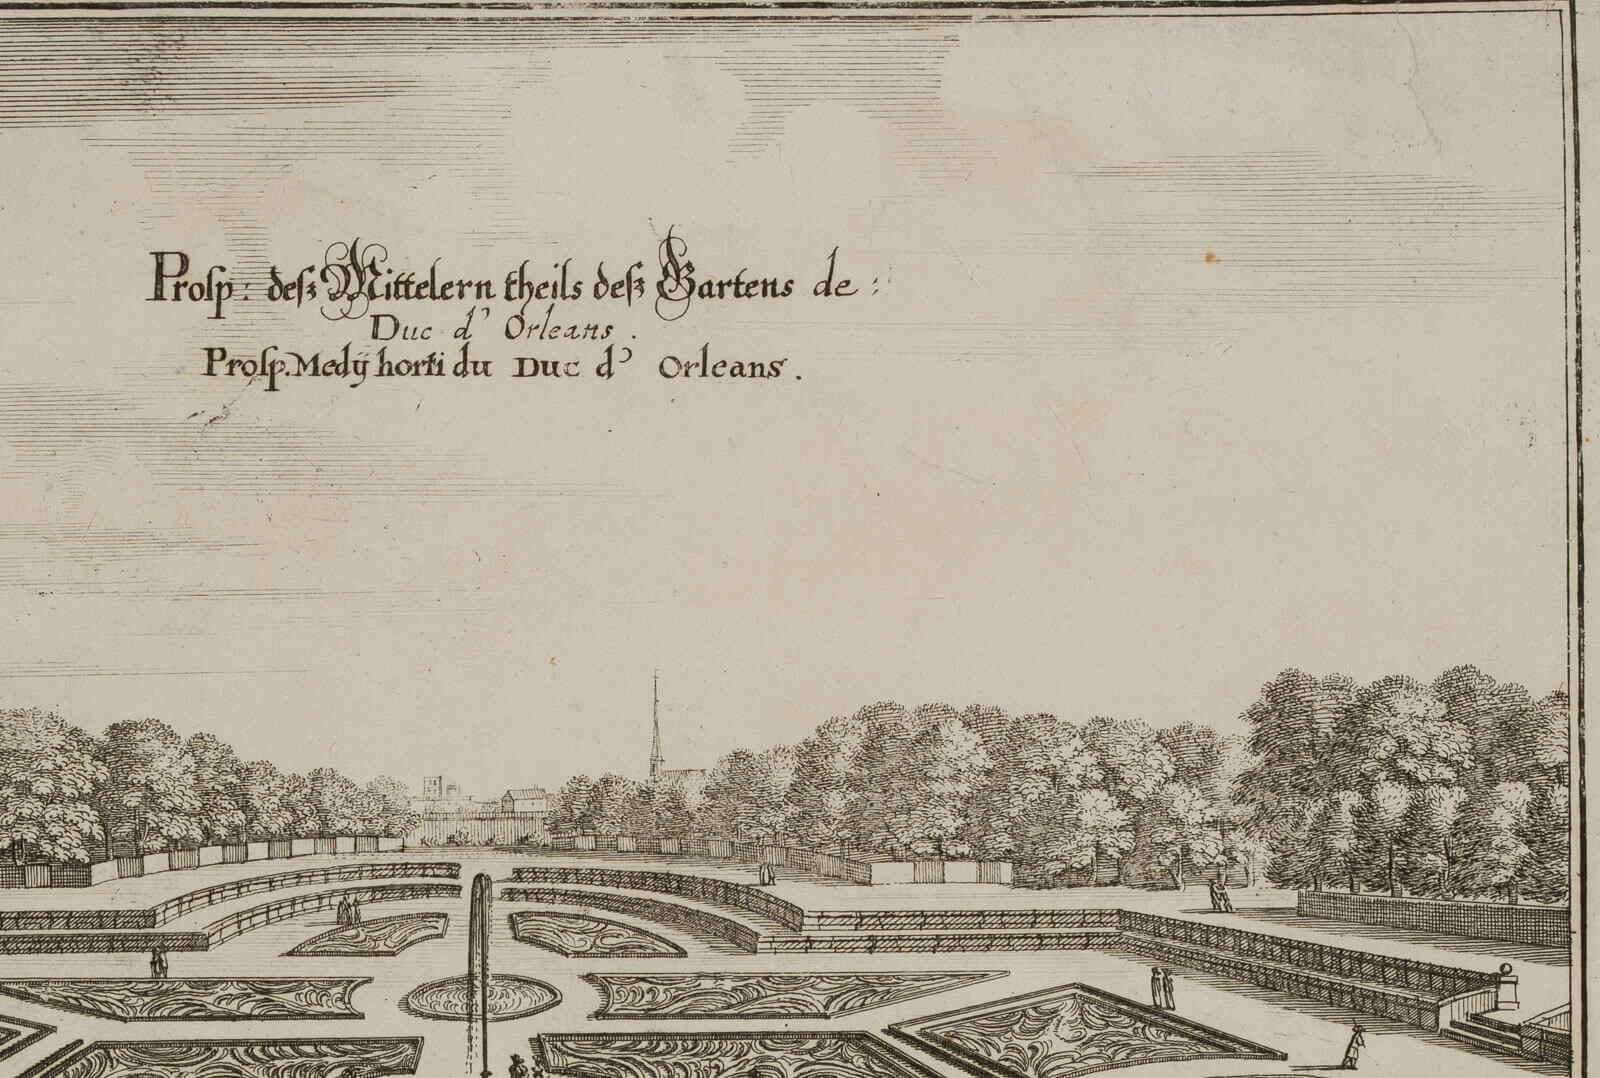 Proſp: deſz Mittelern theils deſz Gartens de:
Duc d' Orleans.
Proſp. Medÿ horti du Duc d' Orleans.